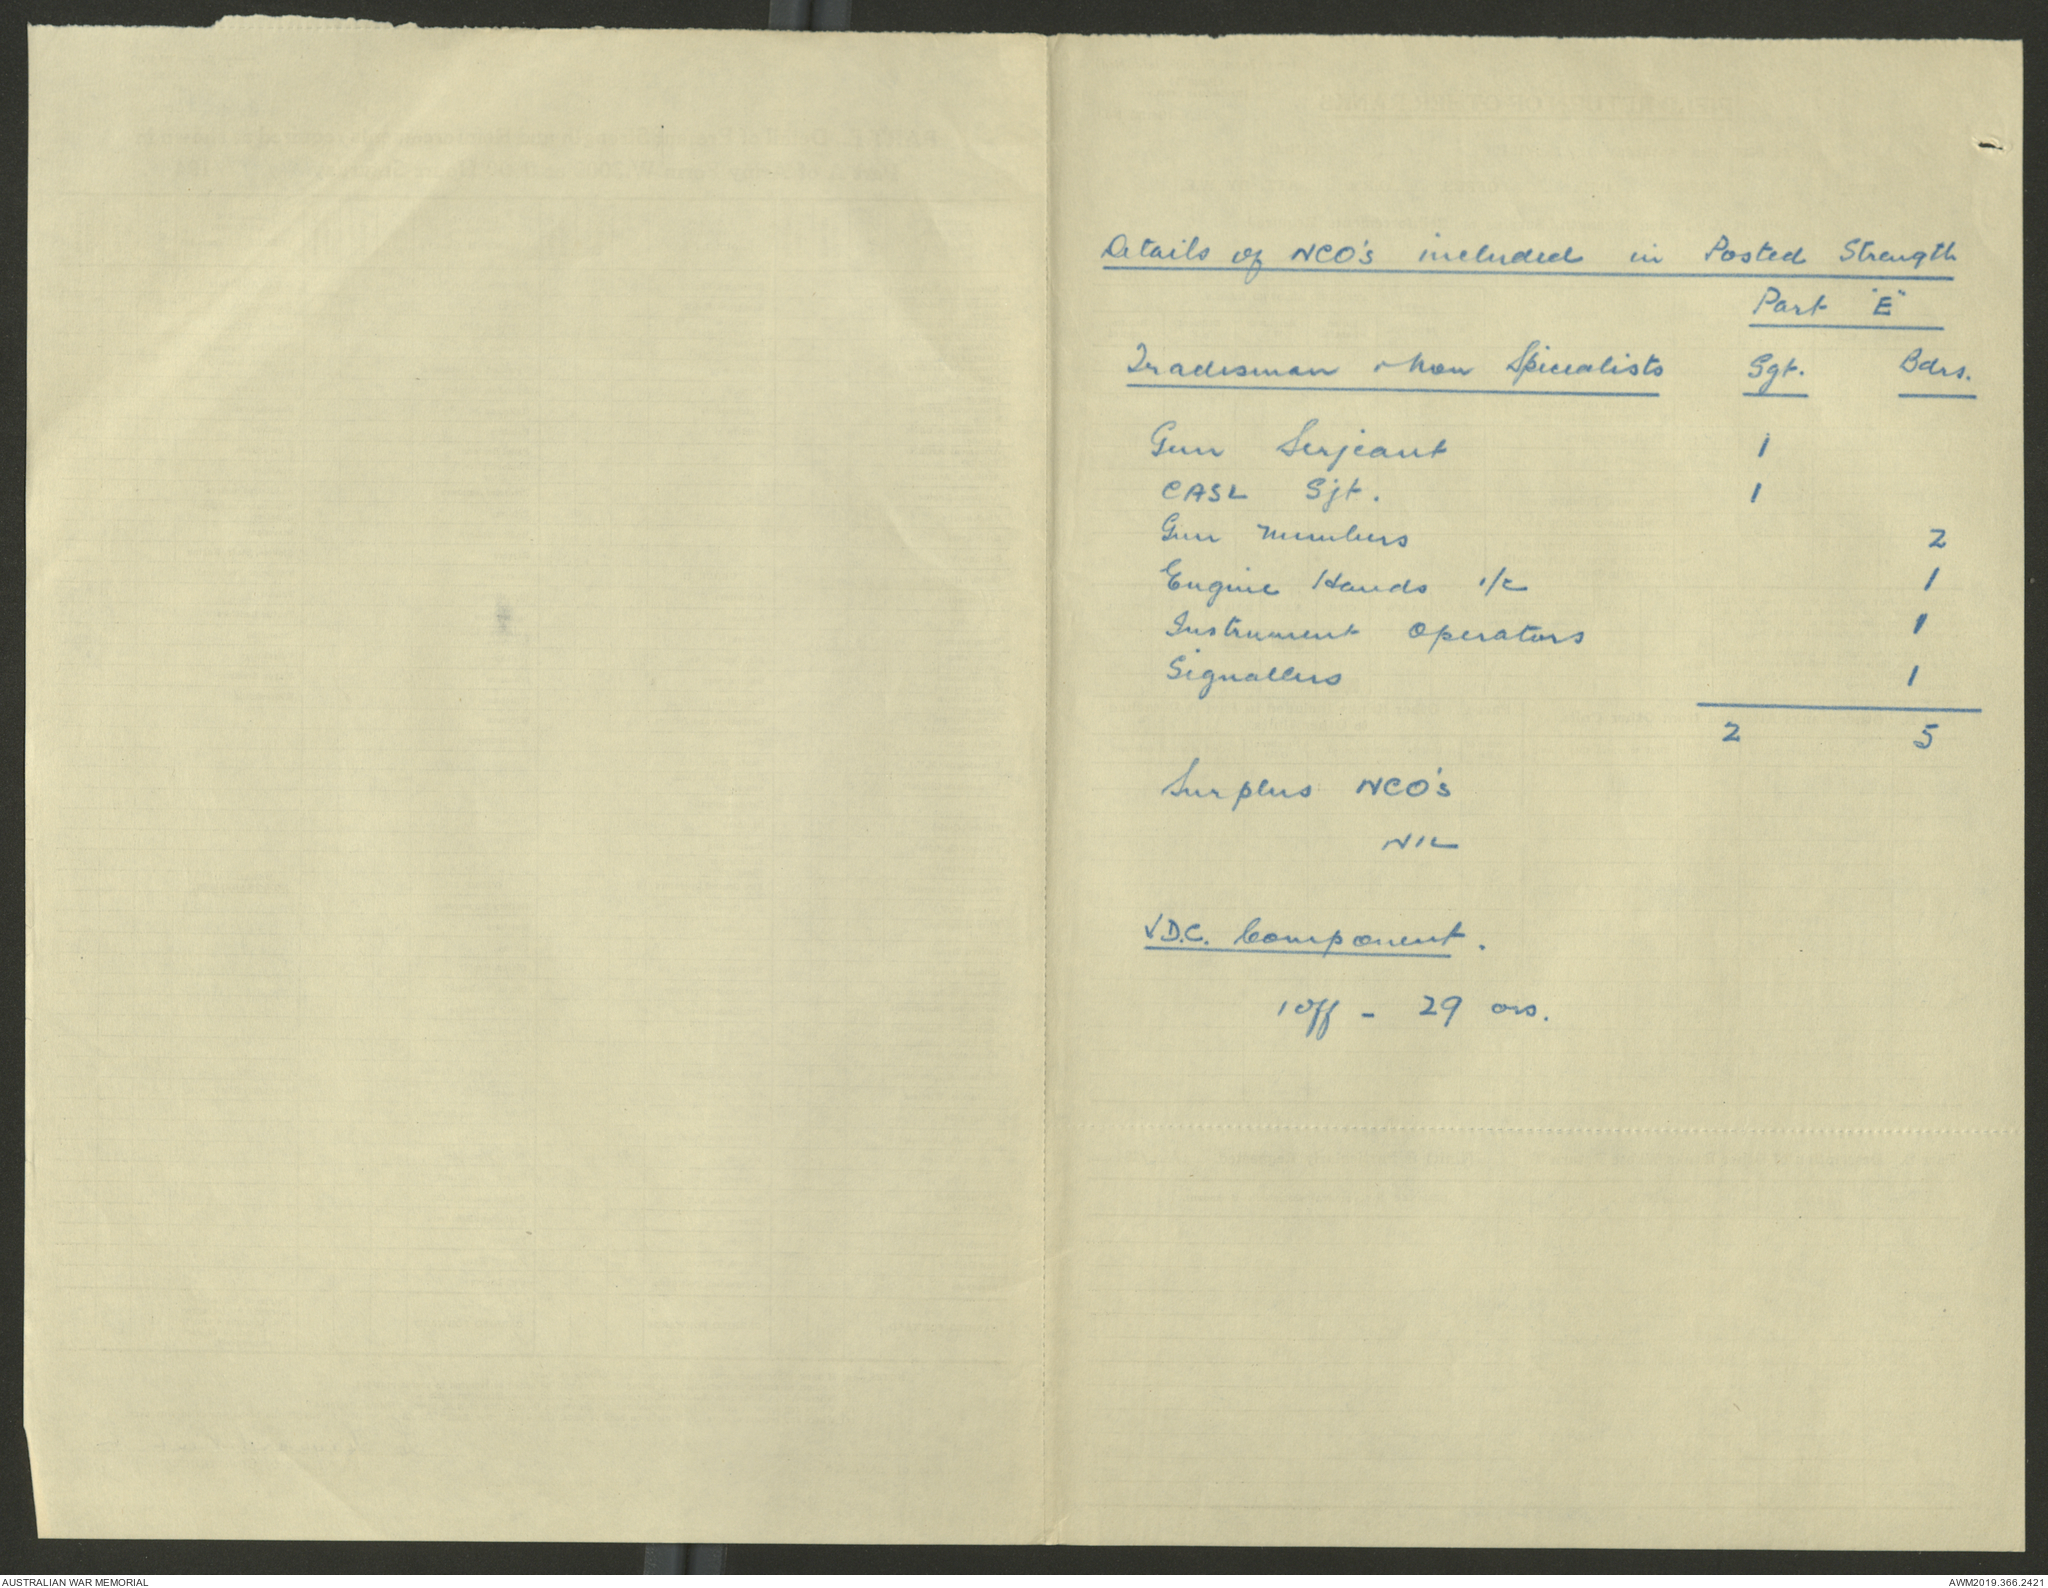 Details of NCO's included in Posted Strength
Part "E"
Tradesman & Non Specialists Sgt. Bdrs.
Gun Serjeant 1
CASL Sjt. 1
Gun Numbers 2
Engine Hands i/c 1
Instrument Operators 1
Signallers 1
2 5
Surplus NCO's
NIL
V.D.C. Component.
1 Off - 29 ors.
AUSTRALIAN WAR MEMORIAL
AWM2019.366.2421